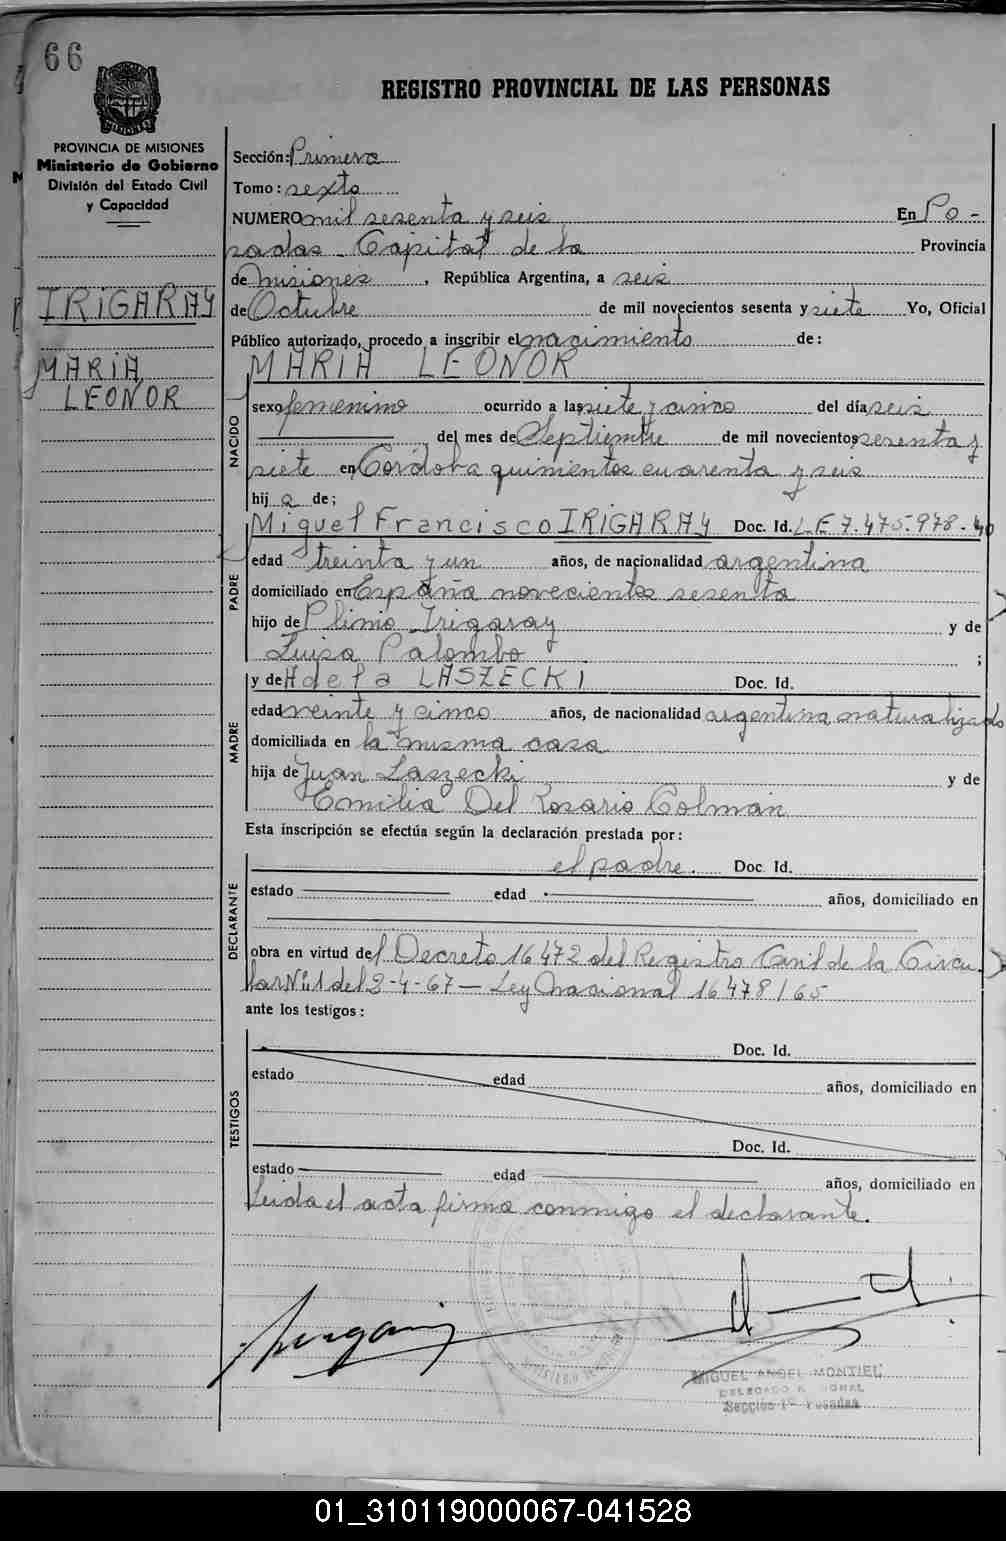 66
REGISTRO PROVINCIAL DE LAS PERSONAS
MISIONES
PROVINCIA DE MISIONES
Ministerio de Gobierno
División del Estado Civil
y Capacidad
IRIGARAY
MARIA
LEONOR
Sección: Primera
Tomo: sexto
NUMERO mil sesenta y seis En Po-
sadas Capital de la Provincia
de Misiones, República Argentina, a seis
de Octubre de mil novecientos sesenta y siete Yo, Oficial
Público autorizado, procedo a inscribir el nacimiento de:
MARIA LEONOR
NACIDO
sexo femenino ocurrido a las siete y cinco del día seis
del mes de Septiembre de mil novecientos sesenta y
siete en Cordoba quinientos cuarenta y seis
hij a de;
Miguel Francisco IRIGARAY Doc. Id. LE 7.475-978-
PADRE
edad treinta y un años, de nacionalidad argentina
domiciliado en España novecientos sesenta
hijo de Plinio Irigaray y de
Luisa Palombo ;
y de Adela LASZECKI Doc. Id.
MADRE
edad veinte y cinco años, de nacionalidad argentina naturalizado
domiciliada en la misma casa
hija de Juan Laszecki y de
Emilia Del Rosario Colman
Esta inscripción se efectúa según la declaración prestada por:
el padre. Doc. Id.
DECLARANTE
estado edad años, domiciliado en
obra en virtud del Decreto 16472 del Registro Civil de la Circu
lar Nº1 del 2-4-67 — Ley Nacional 16478/65
ante los testigos:
Doc. Id.
TESTIGOS
estado edad años, domiciliado en
Doc. Id.
estado edad años, domiciliado en
Leida el acta firma conmigo el declarante.
MIGUEL ANGEL MONTIEL
DELEGADO
Sección 1ª Posadas
01_310119000067-041528